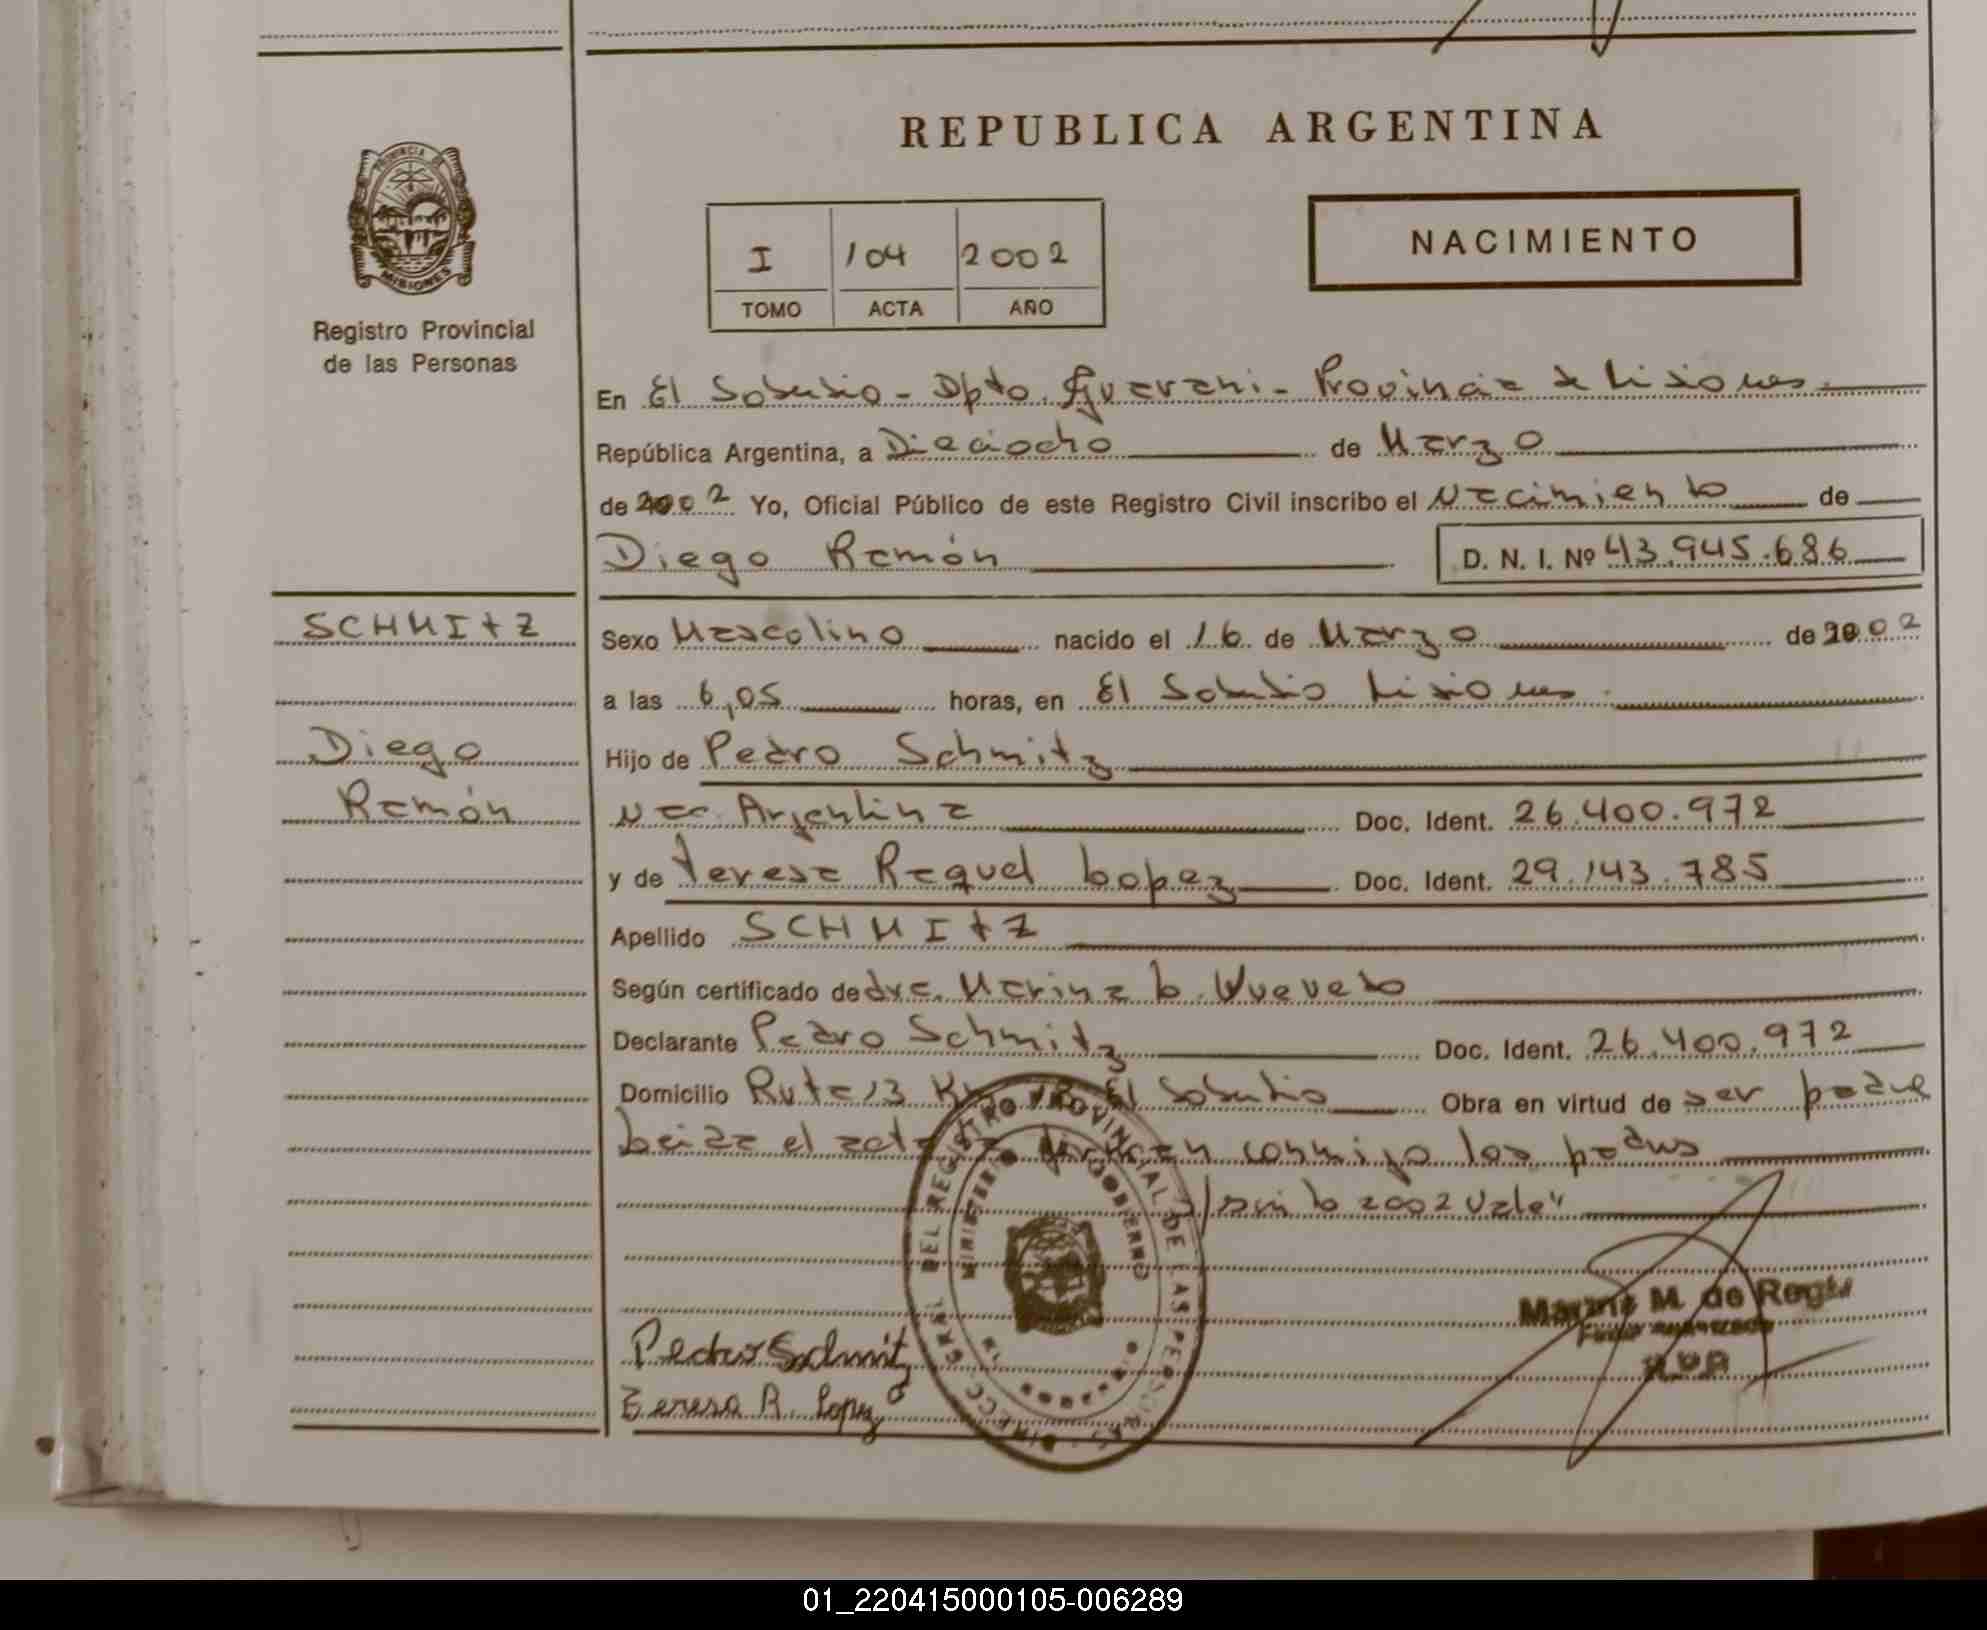 REPUBLICA ARGENTINA
PROVINCIA DE
MISIONES
Registro Provincial
de las Personas
I 104 2002
TOMO ACTA AÑO
NACIMIENTO
En El Soberbio - Dpto. Guarani - Provincia de Misiones.
República Argentina, a Dieciocho de Marzo
de 2002 Yo, Oficial Público de este Registro Civil inscribo el Nacimiento de
Diego Ramón D. N. I. Nº 43.945.686
SCHMITZ
Diego
Ramón
Sexo Masculino nacido el 16 de Marzo de 2002
a las 6,05 horas, en El Soberbio Misiones.
Hijo de Pedro Schmitz
Nac. Argentina Doc. Ident. 26.400.972
y de Teresa Raquel Lopez Doc. Ident. 29.143.785
Apellido SCHMITZ
Según certificado de dra. Marina L.
Declarante Pedro Schmitz Doc. Ident. 26.400.972
Domicilio Ruta 13 El Soberbio Obra en virtud de ser padre
Leida el acta firman conmigo los padres
2002 Vale"
DIRECC GRAL DEL REGISTRO PROVINCIAL DE LAS PERSONAS
MINISTERIO GOBIERNO
Marina M. de
Pedro Schmitz
Teresa R. Lopez
01_220415000105-006289